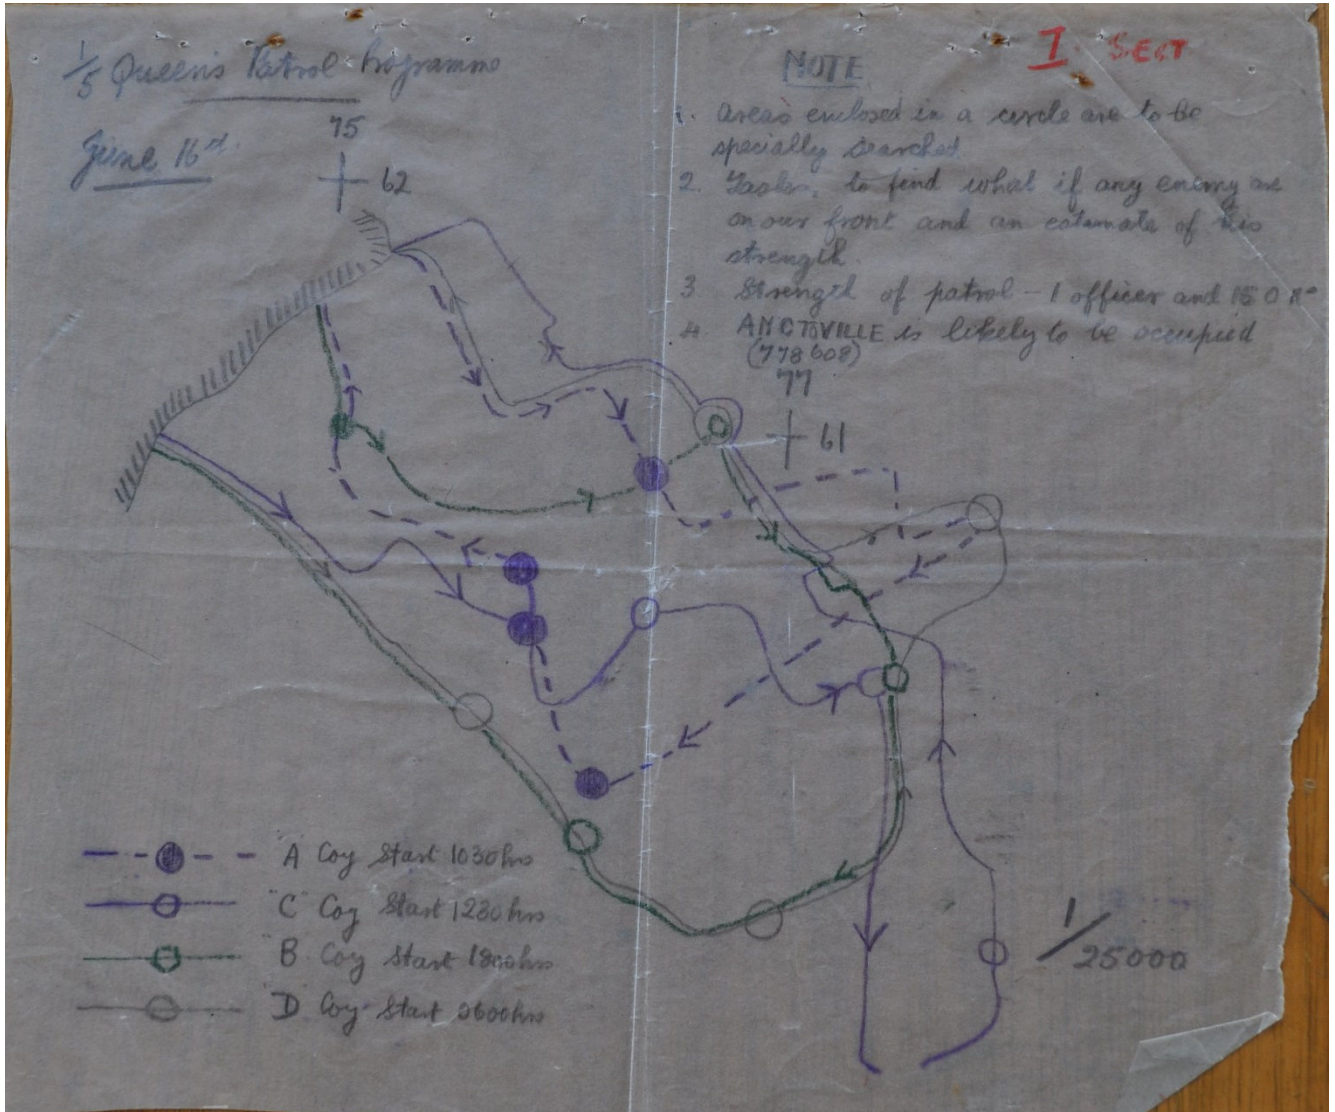 1/5 Queen's Patrol Programme
I. SECT
June 16th.
75
62
NOTE
1. Areas enclosed in a circle are to be
specially searched.
2. Tasks. to find what if any enemy are
on our front and an estimate of his
strength.
3. Strength of patrol - 1 officer and 15 O Rs
4. ANCTOVILLE is likely to be occupied
(778608)
77
61
A Coy Start 1030 hrs
"C" Coy Start 1230 hrs
B Coy Start 1800 hrs
D Coy Start 0600 hrs
1/25000